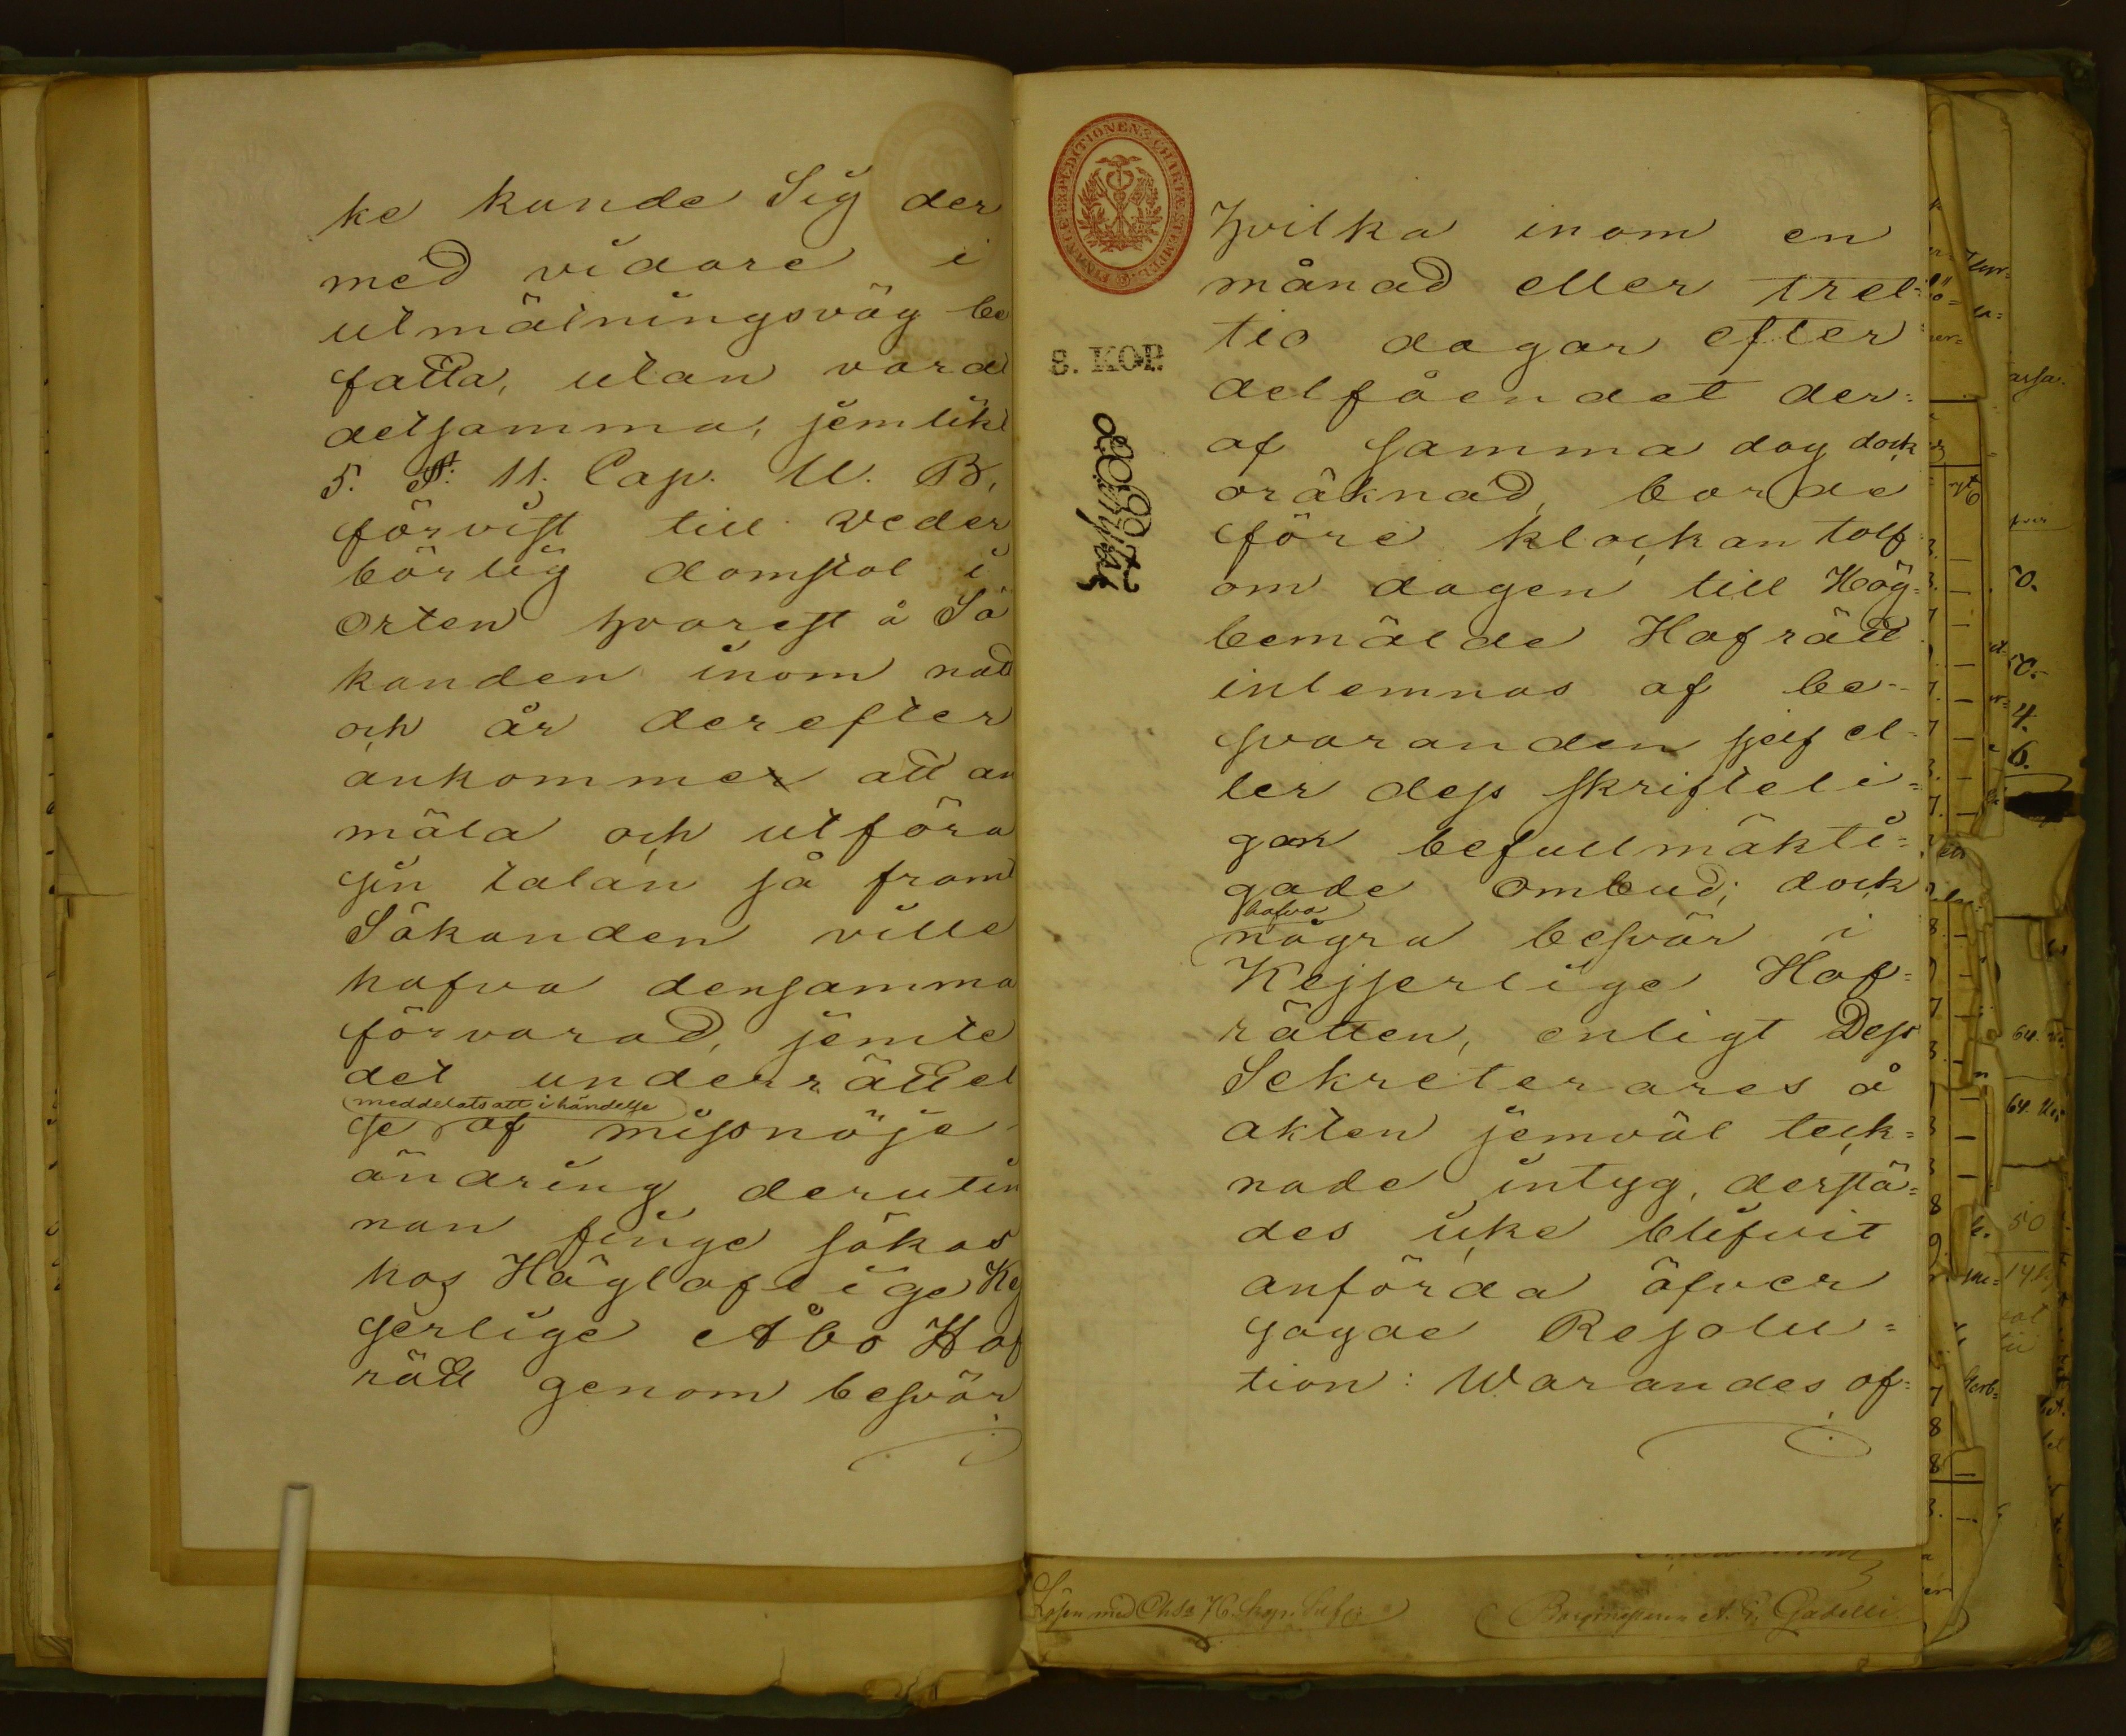 ke kunde Sig der
med vidare i
utmätningsväg be
fatta, utan vard
detsamma, jemlikt
5. §. 11. Cap. U. B.
förvist till veder
börlig domstol i
Orten hvarest å Sö
kanden inom natt
och år derefter
ankommer att an
mäla och utföra
sin talan så framt
Sökanden ville
hafva densamma
förvarad, jemte
det underrättel
meddelats att i händelse
se af missnöje
ändring derutin
nan finge sökas
hos Högloflige Kej
serlige Åbo Hof
rätt genom besvär
FINANCE EXPEDITIONENS CHARTÆ STEMPEL
8. KOP.
hvilka inom en
månad eller tret-
tio dagar efter
delfåendet der-
af samma dag dock
oräknad, borde
före klockan tolf
om dagen till Hög-
bemälde Hofrätt
inlemnas af be-
svaranden sjelf el-
ler dess skrifteli-
gen befullmäkti-
gade ombud; dock
hafva
några besvär i
Kejserlige Hof-
rätten, enligt Dess
Sekreterares å
akten jemväl teck-
nade intyg, derstä-
des icke blifvit
anförda öfver
sagde Resolu-
tion: Warandes of-
Lösen med Chta 76. kop. Silfver
A. G. Gadelli